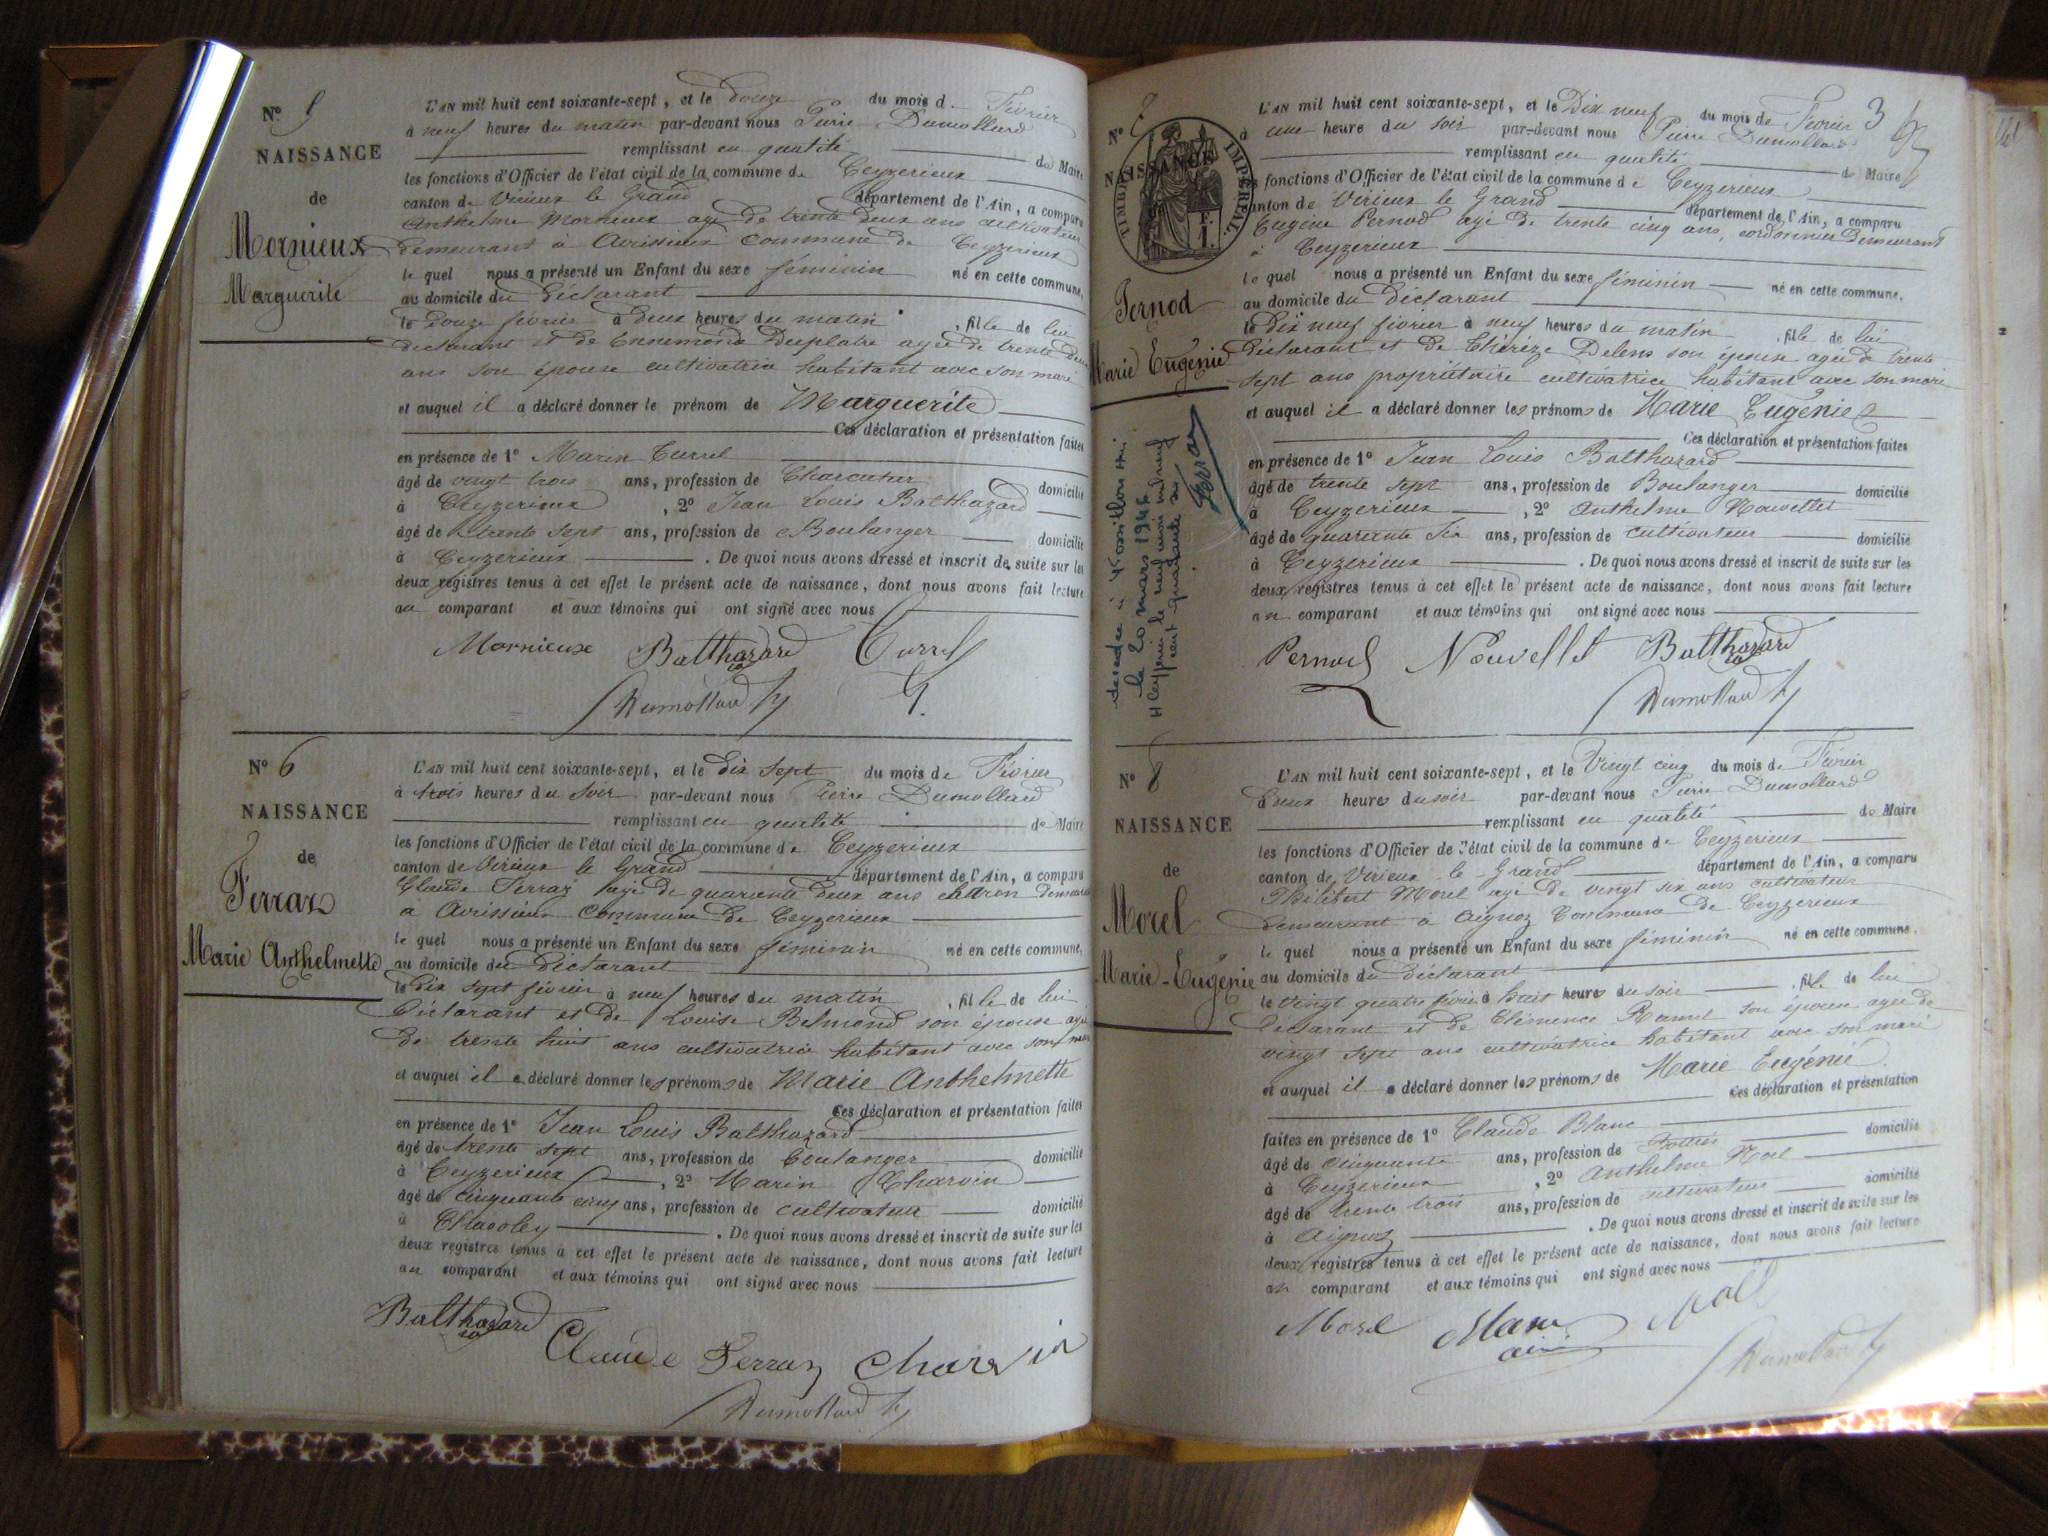 Nº 5
NAISSANCE
de
Mornieux
Marguerite
L'AN mil huit cent soixante-sept, et le douze du mois d. Février
à neuf heures du matin par-devant nous Pierre Dumollard
remplissant en qualité de Maire
les fonctions d'Officier de l'état civil de la commune de Ceyzerieux
canton de Virieux le Grand département de l'Ain, a comparu
Anthelme Mornieux agé de trente deux ans cultivateur
demeurant à Avrissieux commune de Ceyzerieux
le quel nous a présenté un Enfant du sexe féminin né en cette commune,
au domicile du déclarant
le douze février à deux heures du matin , fille de lui
déclarant et de Ennemonde agée de trente deux
ans son épouse cultivatrice habitant avec son mari
et auquel il a déclaré donner le prénom de Marguerite
Ces déclaration et présentation faites
en présence de 1º Marin Currel
âgé de vingt trois ans, profession de Charcutier domicilié
à Ceyzerieux , 2º Jean Louis Balthazard
âgé de trente sept ans, profession de Boulanger domicilié
à Ceyzerieux . De quoi nous avons dressé et inscrit de suite sur les
deux registres tenus à cet effet le présent acte de naissance, dont nous avons fait lecture
au comparant et aux témoins qui ont signé avec nous
Mornieux Balthazard Currel
Dumollard
Nº 6
NAISSANCE
de
Ferraz
Marie Anthelmette
L'AN mil huit cent soixante-sept, et le dix sept du mois de Février
à trois heures du soir par-devant nous Pierre Dumollard
remplissant en qualité de Maire
les fonctions d'Officier de l'état civil de la commune de Ceyzerieux
canton de Virieux le Grand département de l'Ain, a comparu
Claude Ferraz agé de quarante deux ans charon demeurant
à Avrissieux commune de Ceyzerieux
le quel nous a présenté un Enfant du sexe féminin né en cette commune,
au domicile du déclarant
le dix sept février à neuf heures du matin , fille de lui
déclarant et de Louise Belmond son épouse agée
de trente huit ans cultivatrice habitant avec son mari
et auquel il a déclaré donner les prénoms de Marie Anthelmette
Ces déclaration et présentation faites
en présence de 1º Jean Louis Balthazard
âgé de trente sept ans, profession de boulanger domicilié
à Ceyzerieux , 2º Marin Charvin
âgé de cinquante cinq ans, profession de cultivateur domicilié
à Chavoley . De quoi nous avons dressé et inscrit de suite sur les
deux registres tenus à cet effet le présent acte de naissance, dont nous avons fait lecture
au comparant et aux témoins qui ont signé avec nous
Balthazard Claude Ferraz Charvin
Dumollard
Nº 7
NAISSANCE
TIMBRE IMPÉRIAL
Pernod
Marie Eugénie
décédée à
le 20 mars 1946
Ceyzerieu le neuf mai mil neuf
cent quarante six
Ferraz
L'AN mil huit cent soixante-sept, et le Dix neuf du mois de Février 3
à une heure du soir par-devant nous Pierre Dumollard
remplissant en qualité de Maire
les fonctions d'Officier de l'état civil de la commune de Ceyzerieux
canton de Virieux le Grand département de l'Ain, a comparu
Eugène Pernod agé de trente cinq ans, cordonnier demeurant
à Ceyzerieux
le quel nous a présenté un Enfant du sexe féminin né en cette commune,
au domicile du déclarant
le dix neuf février à neuf heures du matin , fille de lui
déclarant et de Thérèze Delens son épouse agée de trente
sept ans propriétaire cultivatrice habitant avec son mari
et auquel il a déclaré donner les prénoms de Marie Eugénie
Ces déclaration et présentation faites
en présence de 1º Jean Louis Balthazard
âgé de trente sept ans, profession de Boulanger domicilié
à Ceyzerieux , 2º Anthelme Nouvellet
âgé de quarante six ans, profession de cultivateur domicilié
à Ceyzerieux . De quoi nous avons dressé et inscrit de suite sur les
deux registres tenus à cet effet le présent acte de naissance, dont nous avons fait lecture
au comparant et aux témoins qui ont signé avec nous
Pernod Nouvellet Balthazard
Dumollard
Nº 8
NAISSANCE
de
Morel
Marie-Eugénie
L'AN mil huit cent soixante-sept, et le Vingt cinq du mois de Février
à deux heures du soir par-devant nous Pierre Dumollard
remplissant en qualité de Maire
les fonctions d'Officier de l'état civil de la commune de Ceyzerieux
canton de Virieux le Grand département de l'Ain, a comparu
Philibert Morel agé de vingt six ans cultivateur
demeurant à Aignoz Commune de Ceyzerieux
le quel nous a présenté un Enfant du sexe féminin né en cette commune,
au domicile du déclarant
le vingt quatre février à huit heures du soir , fille de lui
déclarant et de Clémence Ramel son épouse agée de
vingt sept ans cultivatrice habitant avec son mari
et auquel il a déclaré donner les prénoms de Marie Eugénie
Ces déclaration et présentation
faites en présence de 1º Claude Blanc domicilié
âgé de cinquante ans, profession de
à Ceyzerieux , 2º Anthelme domicilié
âgé de trente trois ans, profession de cultivateur
à Aignoz . De quoi nous avons dressé et inscrit de suite sur les
deux registres tenus à cet effet le présent acte de naissance, dont nous avons fait lecture
au comparant et aux témoins qui ont signé avec nous
Morel
Dumollard